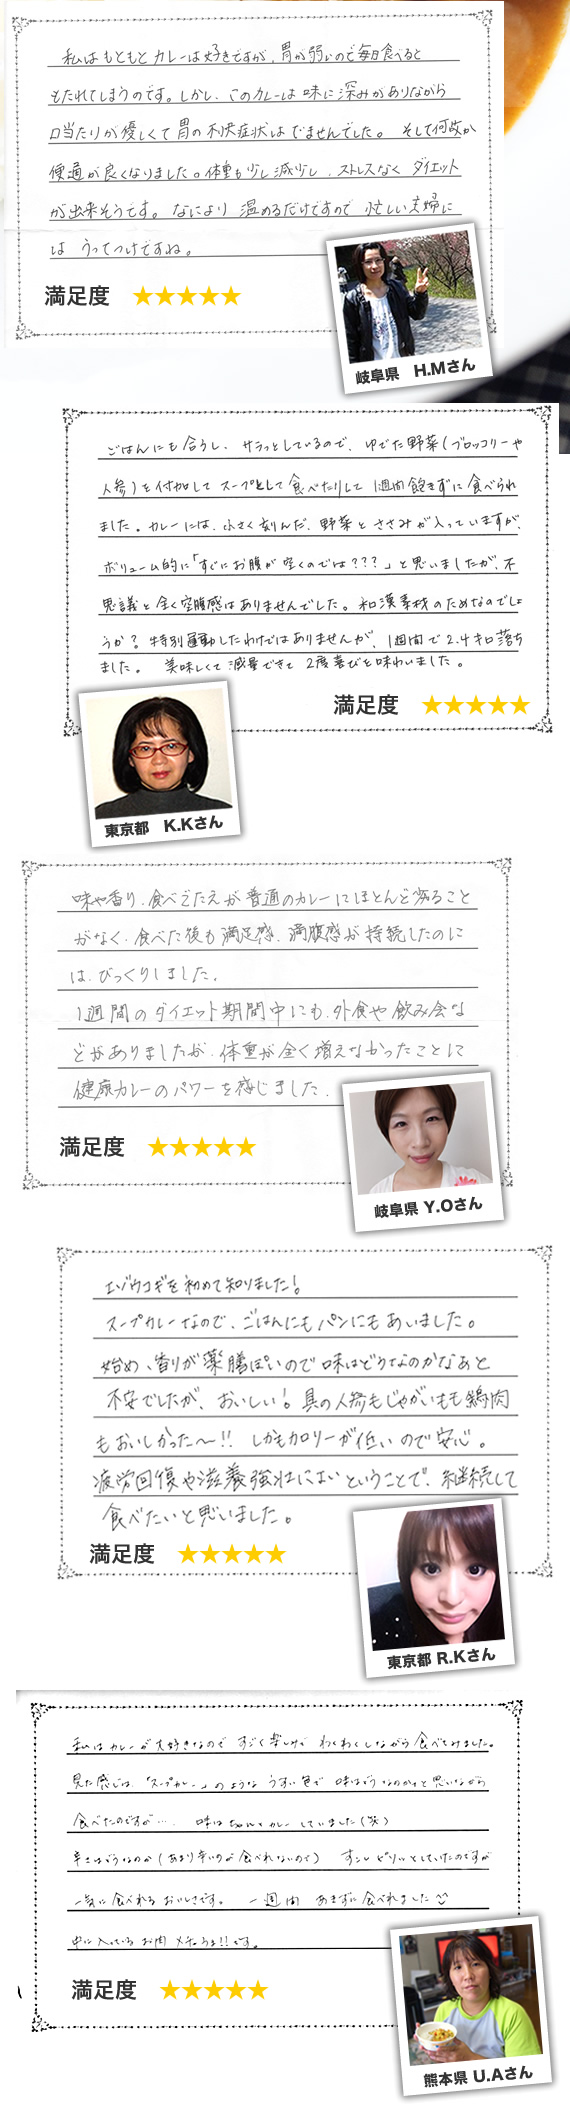 私はもともとカレーは好きですが、胃が弱いので毎日食べると
もたれてしまうのです。しかし、このカレーは味に深みがありながら
口当たりが優しくて胃の不快症状はでませんでした。そして何故か
便通が良くなりました。体重も少し減少し、ストレスなくダイエット
が出来そうです。なにより温めるだけですので忙しい夫婦に
はうってつけですね。
満足度 ★★★★★
岐阜県 H.Mさん
ごはんにも合うし、サラっとしているので、ゆでた野菜(ブロッコリーや
人参)を付加してスープとして食べたりして1週間飽きずに食べられ
ました。カレーには、小さく刻んだ、野菜とささみが入っていますが、
ボリューム的に「すぐにお腹が空くのでは???」と思いましたが、不
思議と全く空腹感はありませんでした。和漢素材のためなのでしょ
うか?特別運動したわけではありませんが、1週間で2.4キロ落ち
ました。 美味しくて減量できて2度喜びを味わいました。
満足度 ★★★★★
東京都 K.Kさん
味や香り、食べごたえが普通のカレーにほとんど劣ること
がなく、食べた後も満足感、満腹感が持続したのに
は、びっくりしました。
1週間のダイエット期間中にも、外食や飲み会な
どがありましたが、体重が全く増えなかったことに
健康カレーのパワーを感じました。
満足度 ★★★★★
岐阜県 Y.Oさん
エゾウコギを初めて知りました!
スープカレーなので、ごはんにもパンにもあいました。
始め、香りが薬膳ぽいので味はどうなのかなあと
不安でしたが、おいしい!具の人参もじゃがいもも鶏肉
もおいしかった〜!! しかもカロリーが低いので安心。
疲労回復や滋養強壮によいということで、継続して
食べたいと思いました。
満足度 ★★★★★
東京都 R.Kさん
私はカレーが大好きなのですごく楽しみでわくわくしながら食べてみました。
見た感じは、「スープカレー」のようなうすい色で味はどうなのかなと思いながら
食べたのですが…、味はちゃんとカレーしていました(笑)
辛さはどうなのか(あまり辛いのが食べれないので) すこしピリッとしていたのですが
一気に食べれるおいしさです。 一週間あきずに食べれました
中に入っているお肉メチャうま!!です。
満足度 ★★★★★
熊本県 U.Aさん